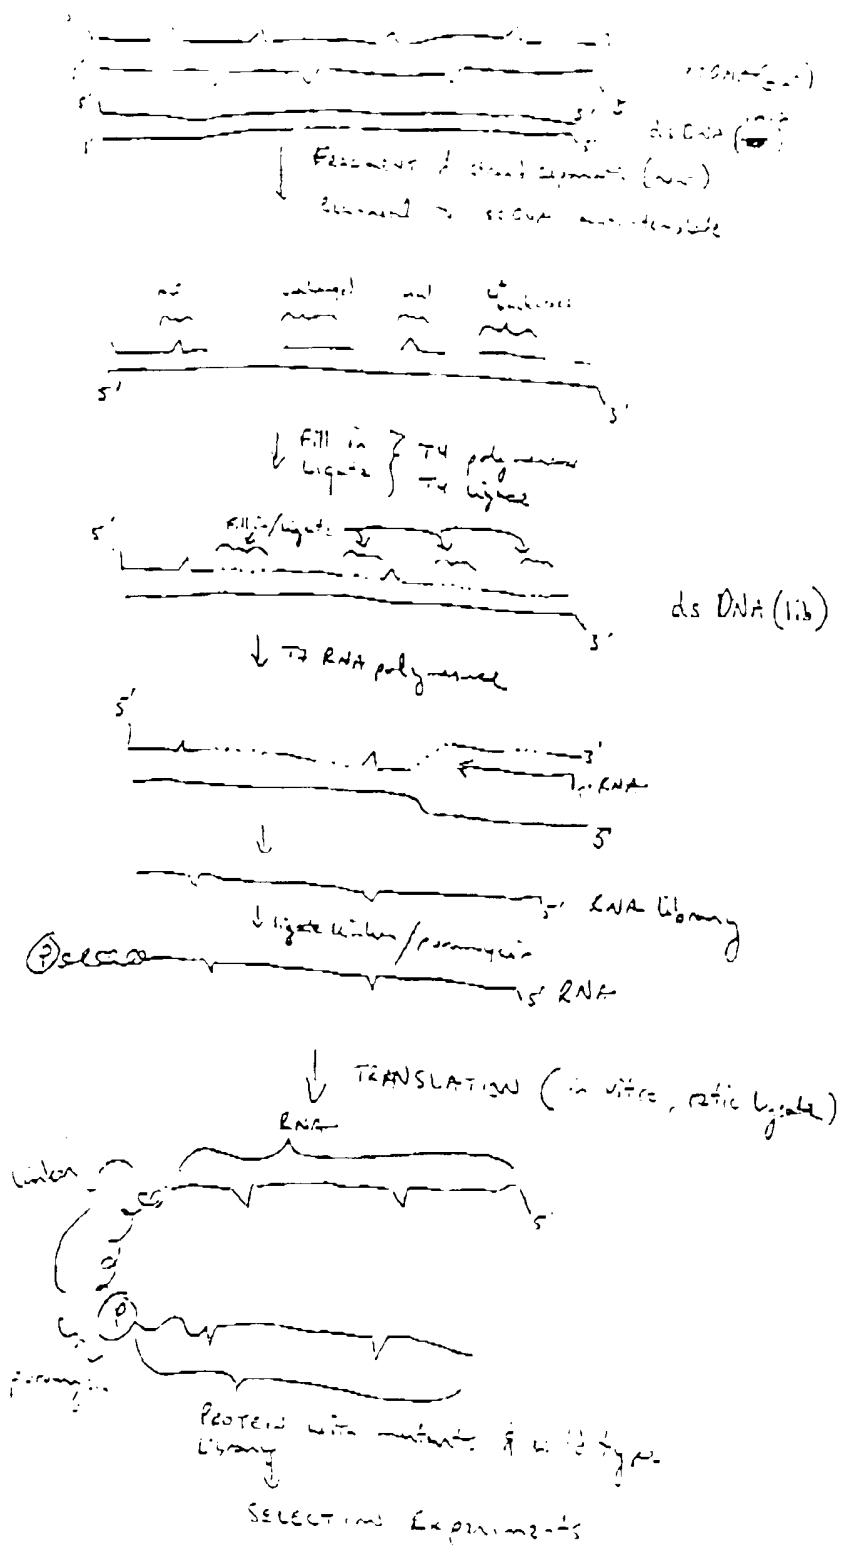 5'
3'
ds DNA
FRAGMENT & strand separate (mut)
to ssDNA
mut unchanged mut
5'
3'
Fill in } T4 polymerase
Ligate } T4 ligase
5'
Fill in/Ligate
ds DNA (lib)
3'
T7 RNA polymerase
5'
3'
RNA
5'
5' RNA Library
ligate linker/puromycin
P
5' RNA
TRANSLATION (in vitro, retic lysate)
RNA
linker
5'
P
puromycin
PROTEIN with mutants & wild type
Library
SELECTION Experiments